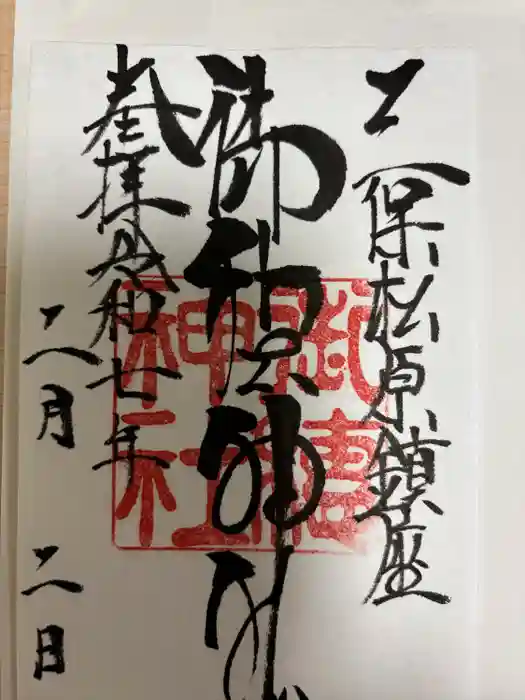 三保松原鎮座
御穂神社
奉拝令和七年
二月二日
御穂
神社